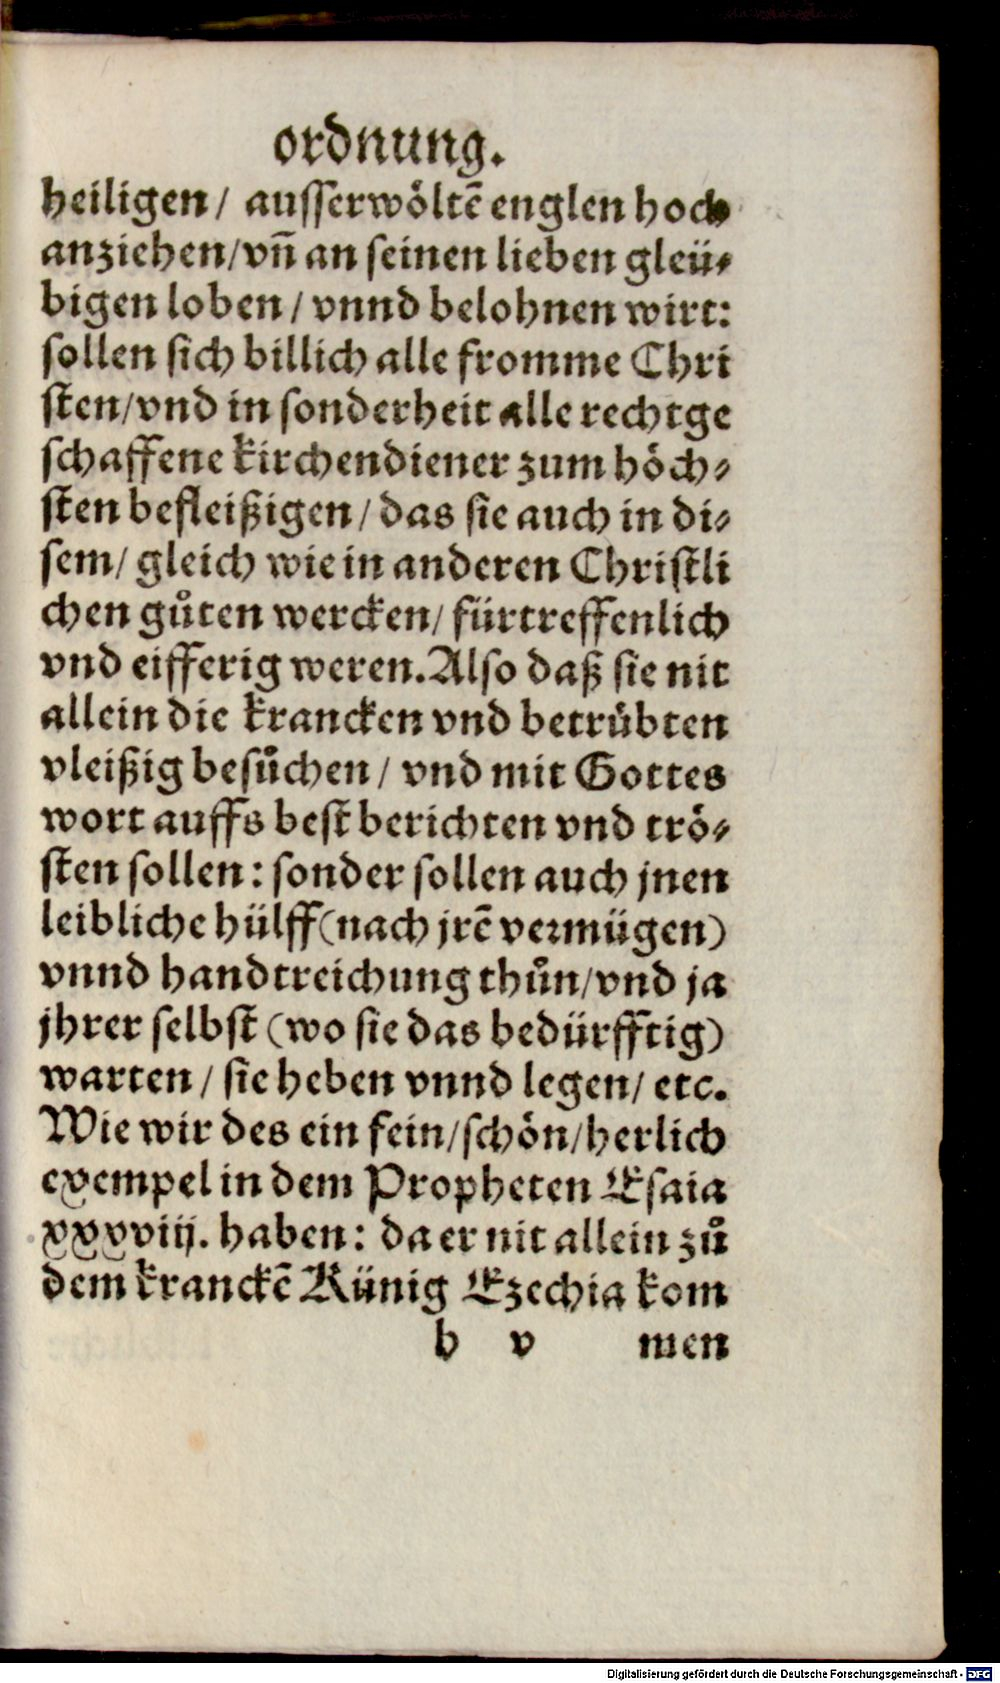 ordnung.
heiligen/ ausserwöltē englen hoch
anziehen/vn̄ an seinen lieben gleü⸗
bigen loben/ vnnd belohnen wirt:
sollen sich billich alle fromme Chri
sten/vnd in sonderheit alle rechtge
schaffene kirchendiener zum höch⸗
sten befleißigen/ das sie auch in di⸗
sem/ gleich wie in anderen Christli
chen gůten wercken/ fürtreffenlich
vnd eifferig weren. Also daß sie nit
allein die krancken vnd betrübten
vleißig besůchen/ vnd mit Gottes
wort auffs best berichten vnd trö⸗
sten sollen: sonder sollen auch jnen
leibliche hülff (nach jrē vermügen)
vnnd handtreichung thůn/vnd ja
jhrer selbst (wo sie das bedürfftig)
warten/ sie heben vnnd legen/ etc.
Wie wir des ein fein/schön/herlich
exempel in dem Propheten Esaia
xxxviij. haben: da er nit allein zů
dem kranckē Künig Ezechia kom
b v men
Digitalisierung gefördert durch die Deutsche Forschungsgemeinschaft - DFG